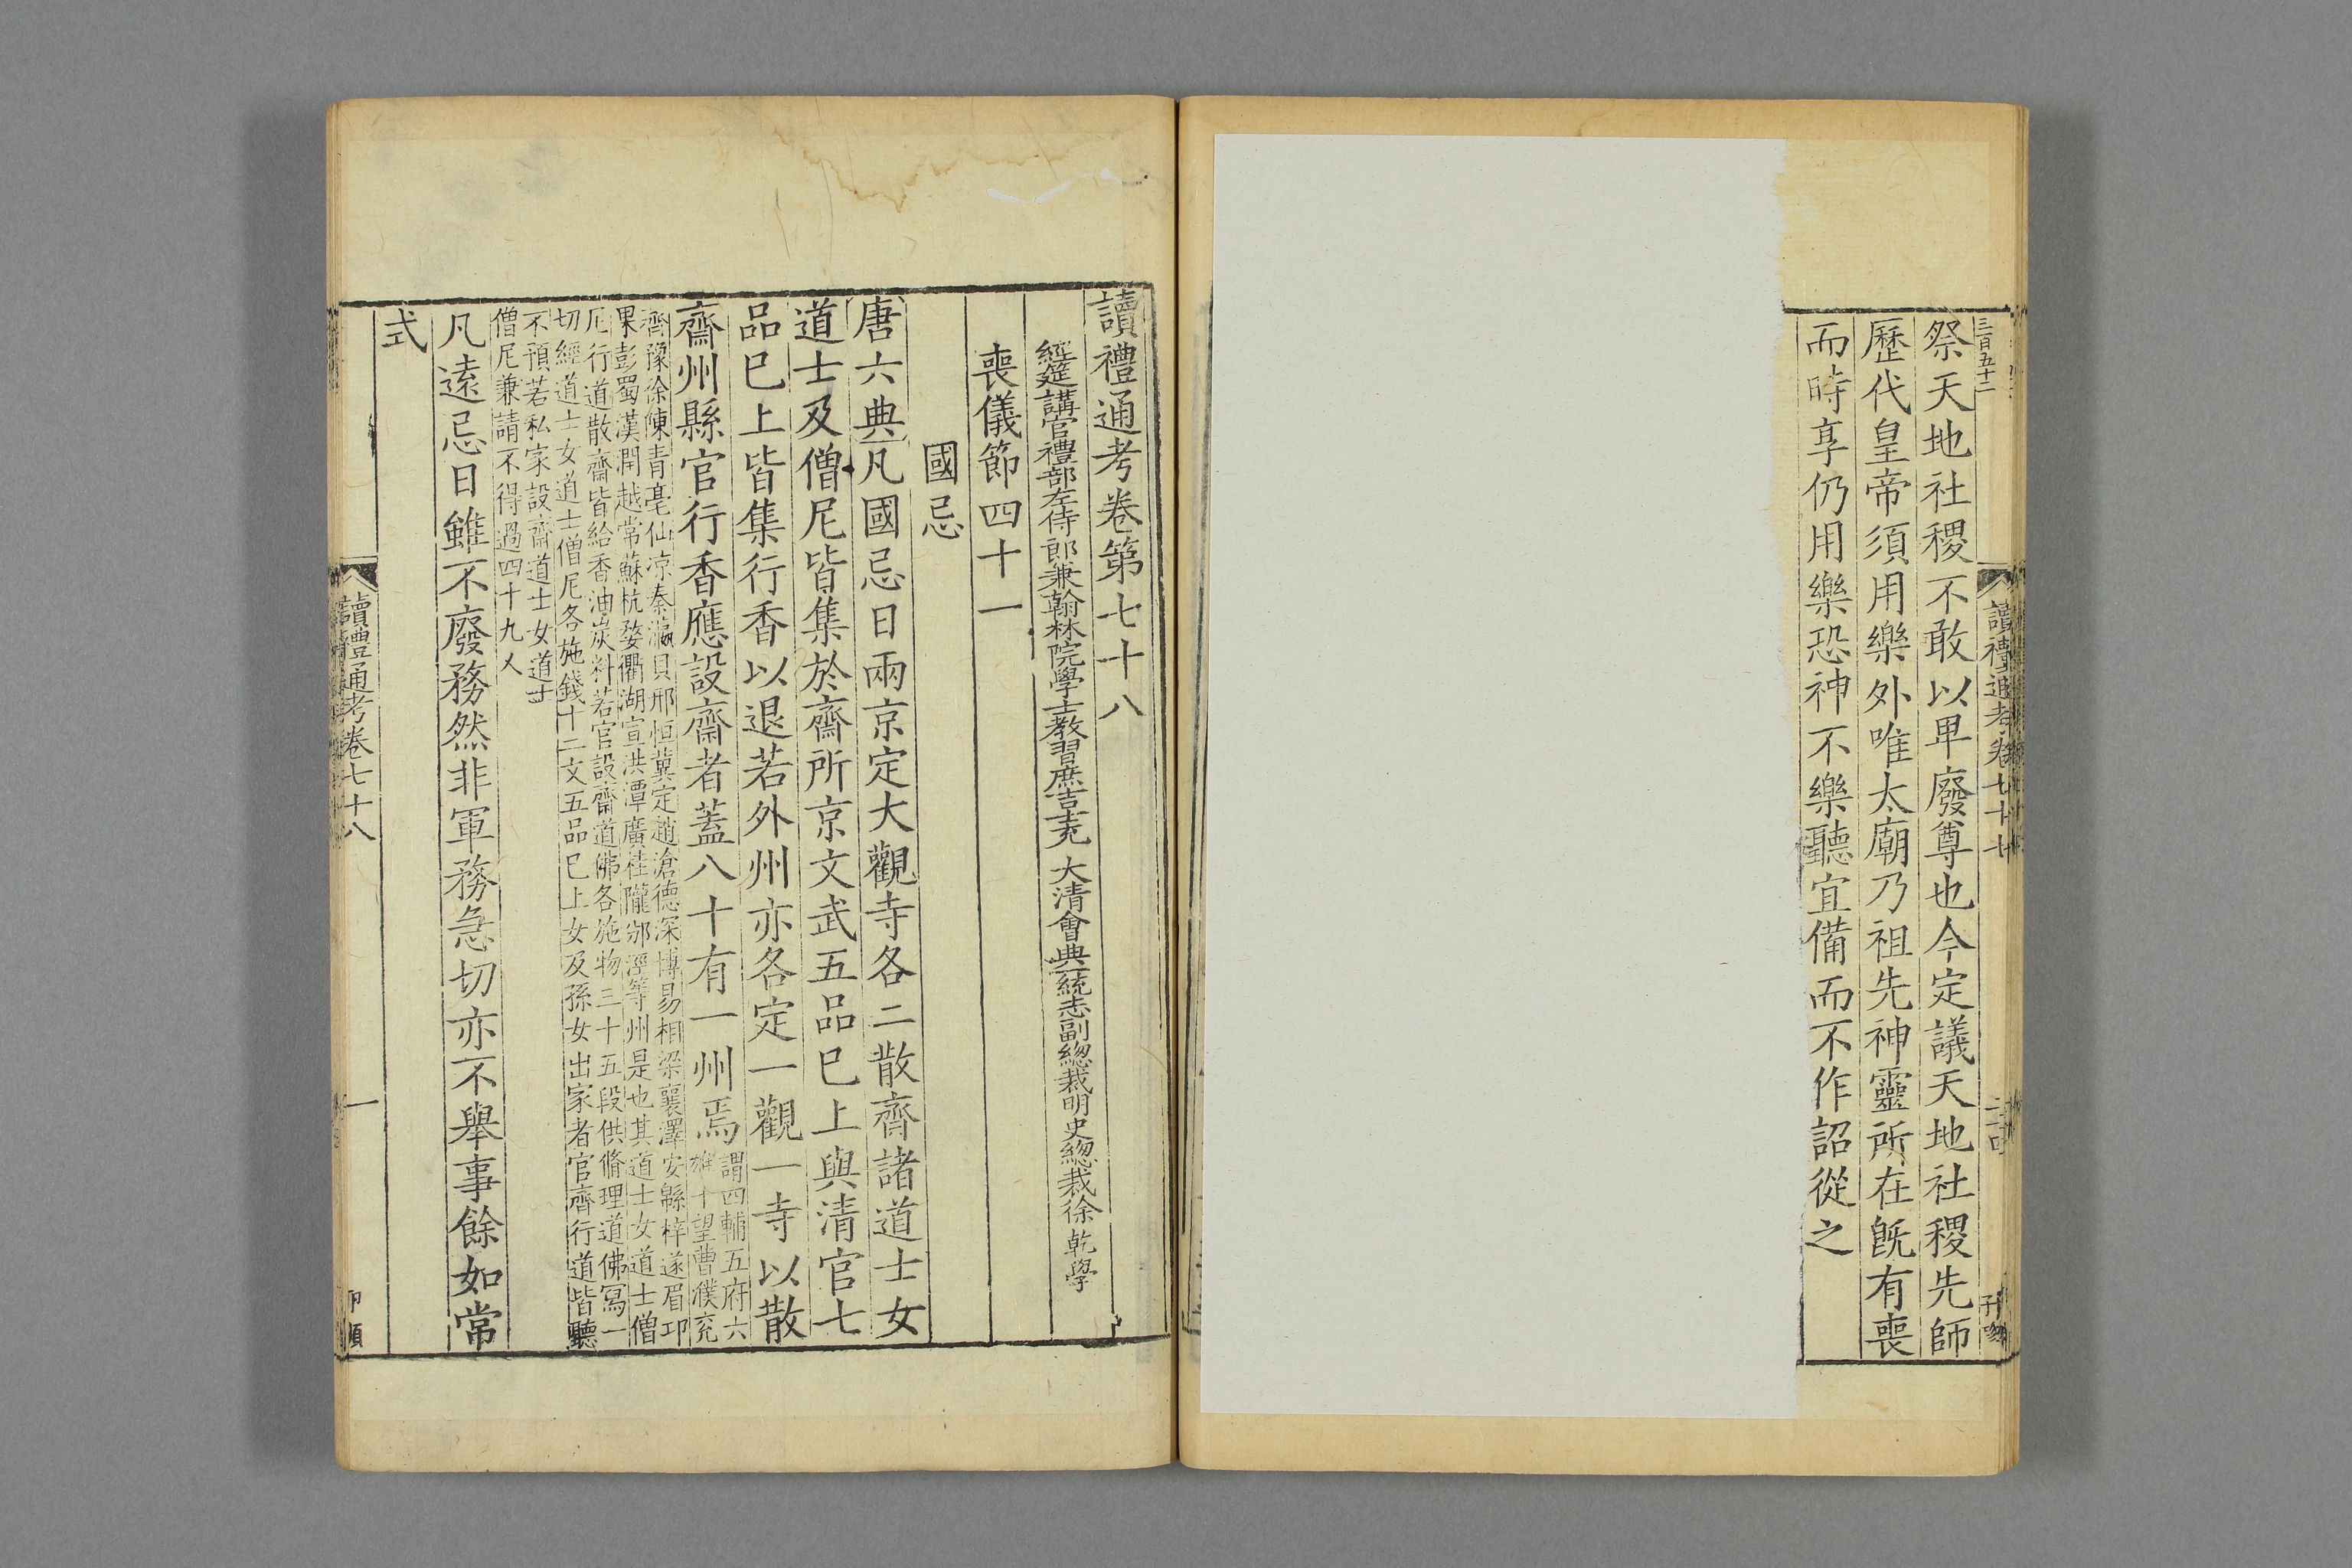 三百五十二
讀禮通考卷七十七
祭天地社稷不敢以卑廢尊也今定議天地社稷先師
歷代皇帝須用樂外唯太廟乃祖先神靈所在旣有喪
而時享仍用樂恐神不樂聽宜備而不作詔從之
讀禮通考卷第七十八
經筵講官禮部左侍郎兼翰林院學士教習庶吉士充 大清會典一統志副總裁明史總裁徐 乾學
喪儀節四十一
國忌
唐六典凡國忌日兩京定大觀寺各二散齊諸道士女
道士及僧尼皆集於齋所京文武五品已上與清官七
品已上皆集行香以退若外州亦各定一觀一寺以散
齋州縣官行香應設齋者蓋八十有一州焉
謂四輔五府六
雄十望曹濮兖
齊豫徐陳青亳仙涼秦瀛貝邢恒冀定趙滄德深博易相梁襄澤安緜梓遂眉邛
果彭蜀漢閏越常蘇杭婺衢湖宣洪潭廣桂隴邠涇等州是也其道士女道士僧
尼行道散齋皆給香油炭料若官設齋道佛各施物三十五段供脩理道佛寫一
切經道士女道士僧尼各施錢十二文五品已上女及孫女出家者官齊行道皆聽
不預若私家設齋道士女道士
僧尼兼請不得過四十九人
凡遠忌日雖不廢務然非軍務急切亦不舉事餘如常
式
讀禮通考卷七十八
一